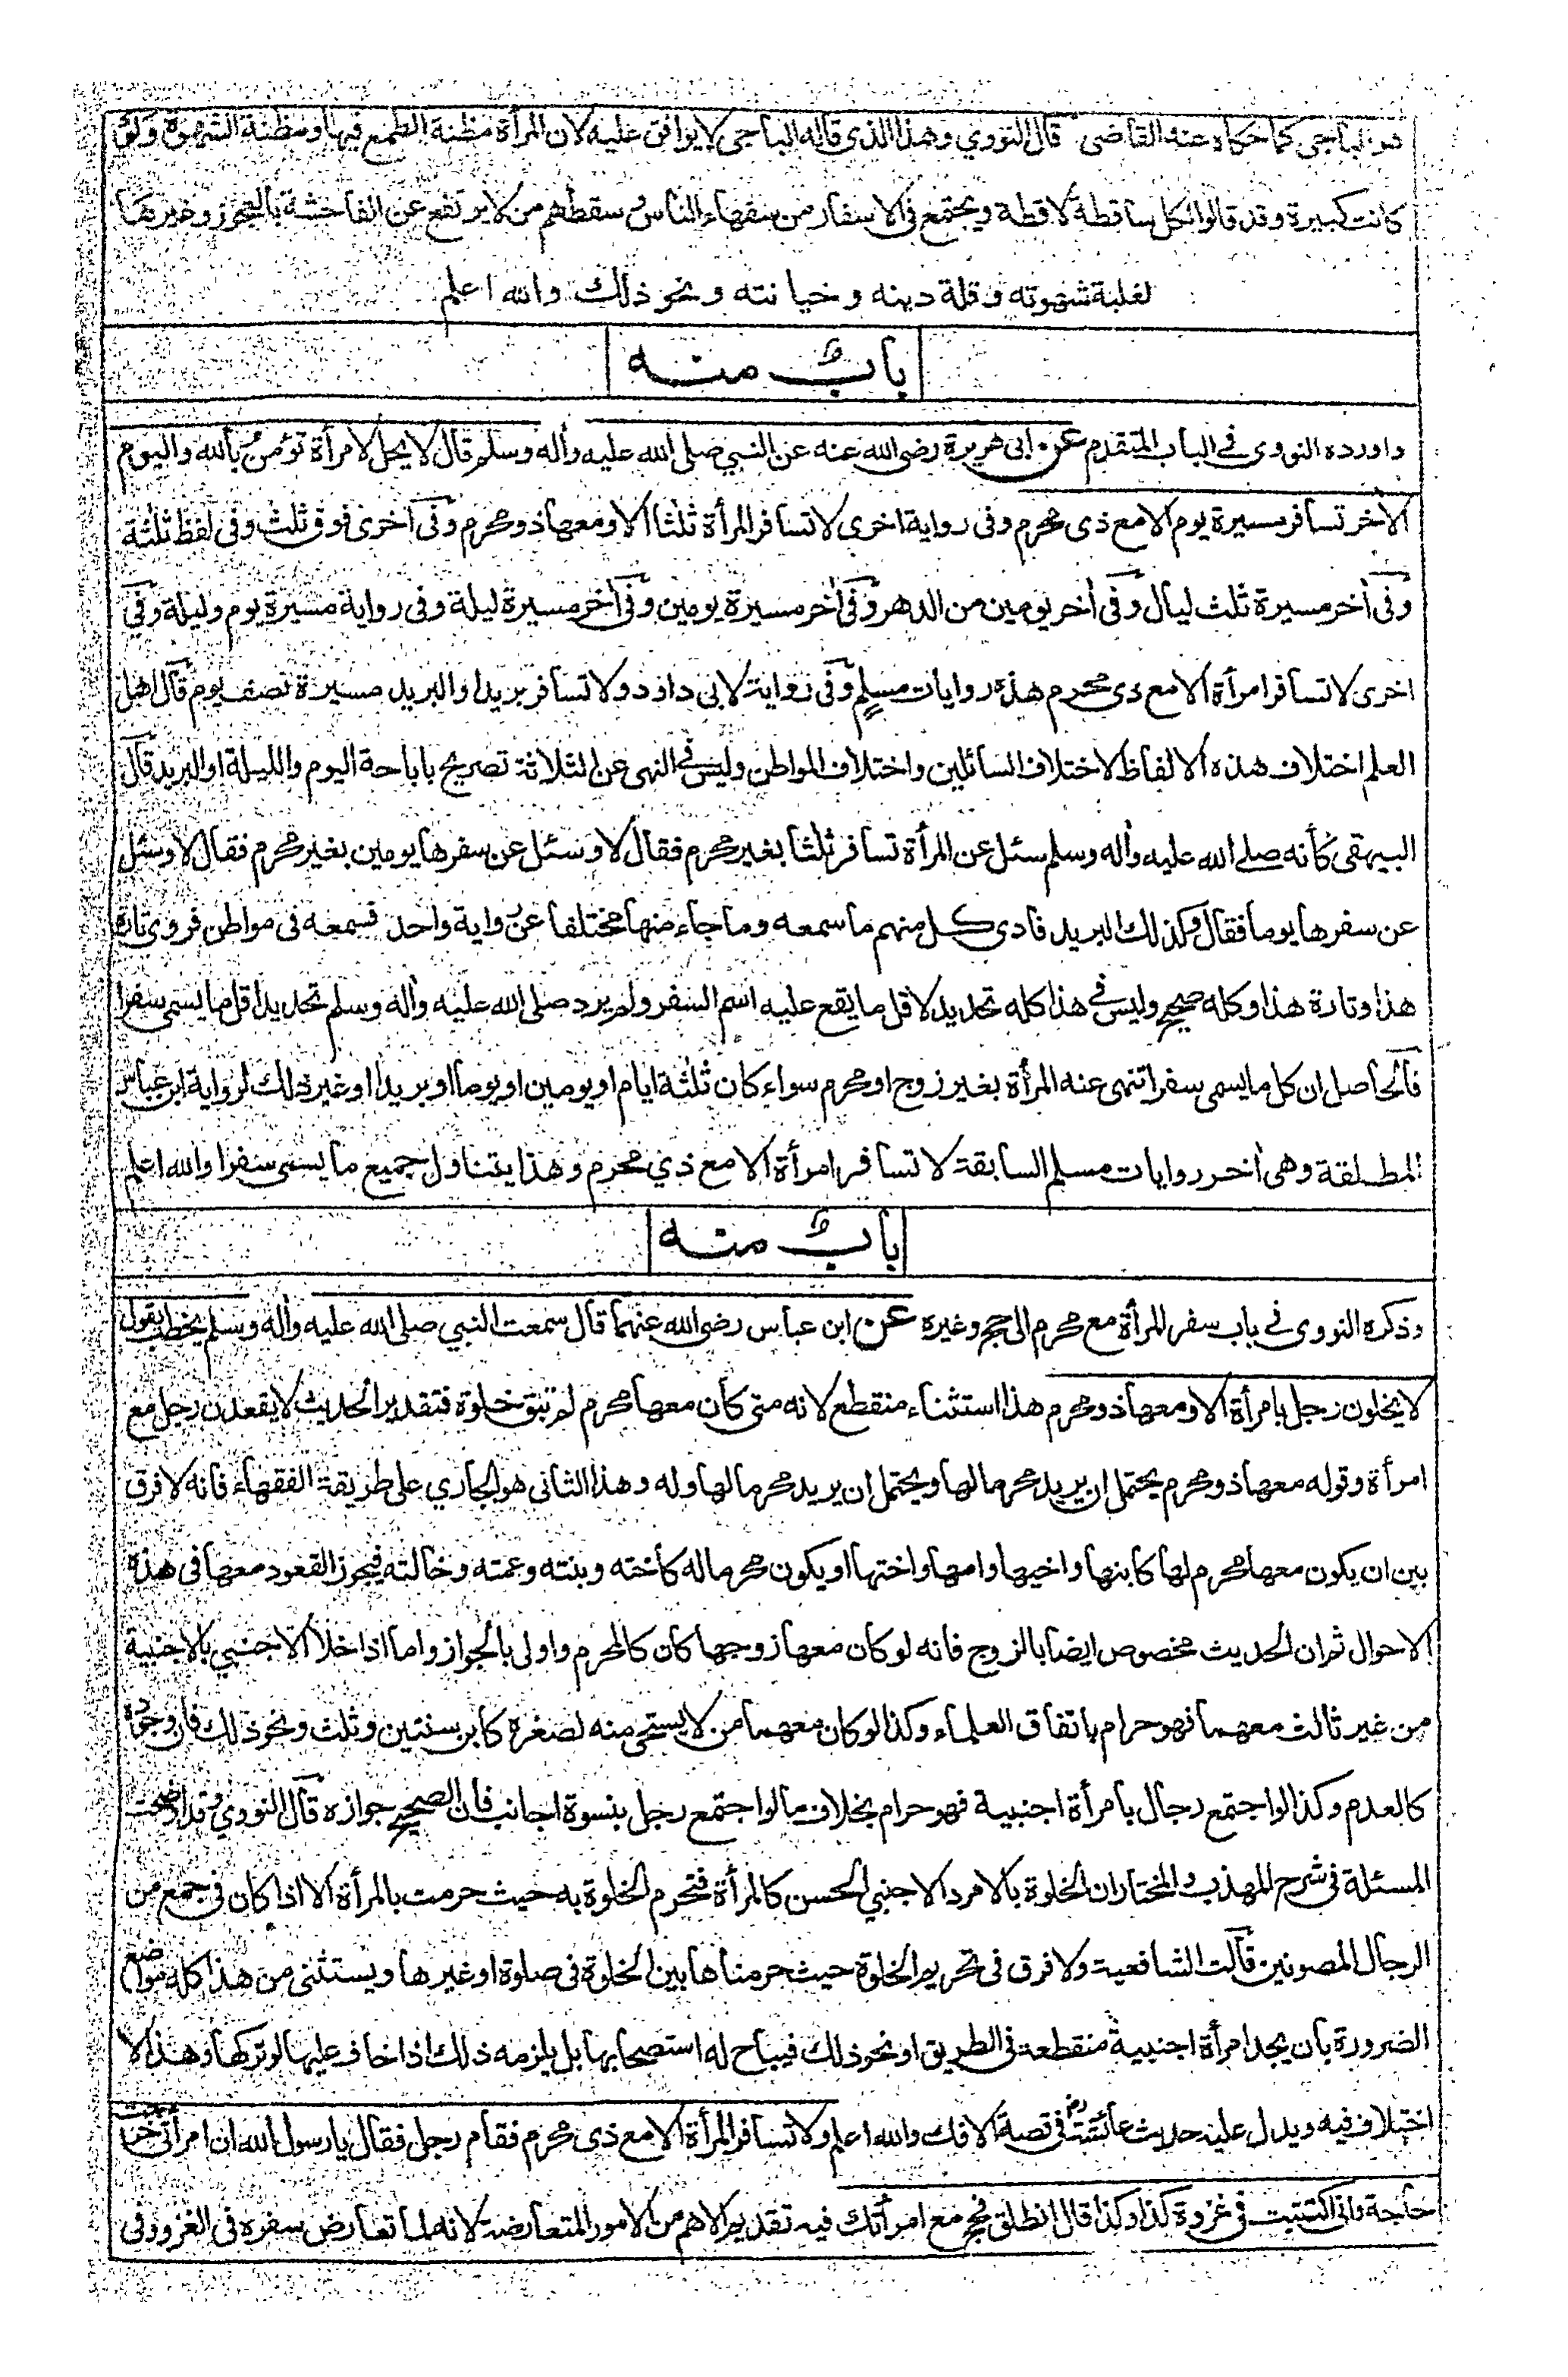 من الباجي كما حكاه عنه القاضى قال النووي وهذا الذى قاله الباجى لا يوافق عليه لان المرأة مظنة الطمع فيها ومظنة الشهوة ولو
كانت كبيرة وقد قالوا لكل ساقطة لاقطة ويجتمع فى الاسفار من سفهاء الناس وسقطهم من لا يرتفع عن الفاحشة بالعجوز وغيرها
لغلبة شهوته وقلة دينه وخيانته ونحو ذلك والله اعلم
بابٌ منه
واورده النووى فى الباب المتقدم عن ابى هريرة رضى الله عنه عن النبي صلى الله عليه وأله وسلم قال لا يحل لامرأة تؤمن بالله واليوم
الأخر تسافر مسيرة يوم الا مع ذى محرم وفى رواية اخرى لا تسافر المرأة ثلثا الا ومعها ذو محرم وفى اخرى فوق ثلث وفى لفظ ثلثة
وفى أخر مسيرة ثلث ليال وفى أخر يومين من الدهر وفى أخر مسيرة يومين وفى أخر مسيرة ليلة وفى رواية مسيرة يوم وليلة وفي
اخرى لا تسافر امرأة الا مع ذى محرم هذه روايات مسلم وفى رواية لابى داود ولا تسافر بريدا والبريد مسيرة نصف يوم قال اهل
العلم اختلاف هذه الالفاظ لاختلاف السائلين واختلاف المواطن وليس فى النهى عن الثلاثة تصريح باباحة اليوم والليلة او البريد قال
البيهقى كأنه صلى الله عليه وأله وسلم سئل عن المرأة تسافر ثلثا بغير محرم فقال لا وسئل عن سفرها يومين بغير محرم فقال لا وسئل
عن سفرها يوما فقال وكذلك البريد فادى كل منهم ما سمعه وما جاء منها مختلفا عن رواية واحد فسمعه فى مواطن فروى تارة
هذا وتارة هذا وكله صحيح وليس فى هذا كله تحديد لاقل ما يقع عليه اسم السفر ولم يرد صلى الله عليه وأله وسلم تحديد اقل ما يسمى سفرا
فالحاصل ان كل ما يسمى سفرا تنهى عنه المرأة بغير زوج او محرم سواء كان ثلثة ايام او يومين او يوما او بريدا او غير ذلك لرواية ابن عباس
المطلقة وهى أخر روايات مسلم السابقة لا تسافر امرأة الا مع ذي محرم وهذا يتناول جميع ما يسمى سفرا والله اعلم
بابٌ منه
وذكره النووى فى باب سفر المرأة مع محرم الى حج وغيره عن ابن عباس رضى الله عنهما قال سمعت النبي صلى الله عليه وأله وسلم يخطب يقول
لا يخلون رجل بامرأة الا ومعها ذو محرم هذا استثناء منقطع لانه متى كان معها محرم لم تبق خلوة فتقدير الحديث لا يقعدن رجل مع
امرأة وقوله معها ذو محرم يحتمل ان يريد محرما لها ويحتمل ان يريد محرما لها وله وهذا الثانى هو الجاري على طريقة الفقهاء فانه لا فرق
بين ان يكون معها محرم لها كابنها واخيها وامها واختها او يكون محرما له كاخته وبنته وعمته وخالته فيجوز القعود معها فى هذه
الاحوال ثم ان الحديث مخصوص ايضا بالزوج فانه لو كان معها زوجها كان كالمحرم واولى بالجواز واما اذا خلا الاجنبي بالاجنبية
من غير ثالث معهما فهو حرام باتفاق العلماء وكذا لو كان معهما من لا يستحى منه لصغره كابن سنتين وثلث ونحو ذلك فان وجوده
كالعدم وكذا لو اجتمع رجال بامرأة اجنبية فهو حرام بخلاف ما لو اجتمع رجل بنسوة اجانب فان الصحيح جوازه قال النووي وقد اوضحت
المسئلة فى شرح المهذب والمختار ان الخلوة بالامرد الاجنبي الحسن كالمرأة فتحرم الخلوة به حيث حرمت بالمرأة الا اذا كان فى جمع من
الرجال المصونين قالت الشافعية ولا فرق فى تحريم الخلوة حيث حرمناها بين الخلوة فى صلوة او غيرها ويستثنى من هذا كله مواضع
الضرورة بان يجد امرأة اجنبية منقطعة فى الطريق او نحو ذلك فيباح له استصحابها بل يلزمه ذلك اذا خاف عليها لو تركها وهذا لا
اختلاف فيه ويدل عليه حديث عائشة رض فى قصة الافك والله اعلم ولا تسافر المرأة الا مع ذى محرم فقام رجل فقال يا رسول الله ان امرأتى خرجت
حاجة وانى اكتتبت فى غزوة كذا وكذا قال انطلق فحج مع امرأتك فيه تقديم الاهم من الامور المتعارضة لانه لما تعارض سفره فى الغزو وفى